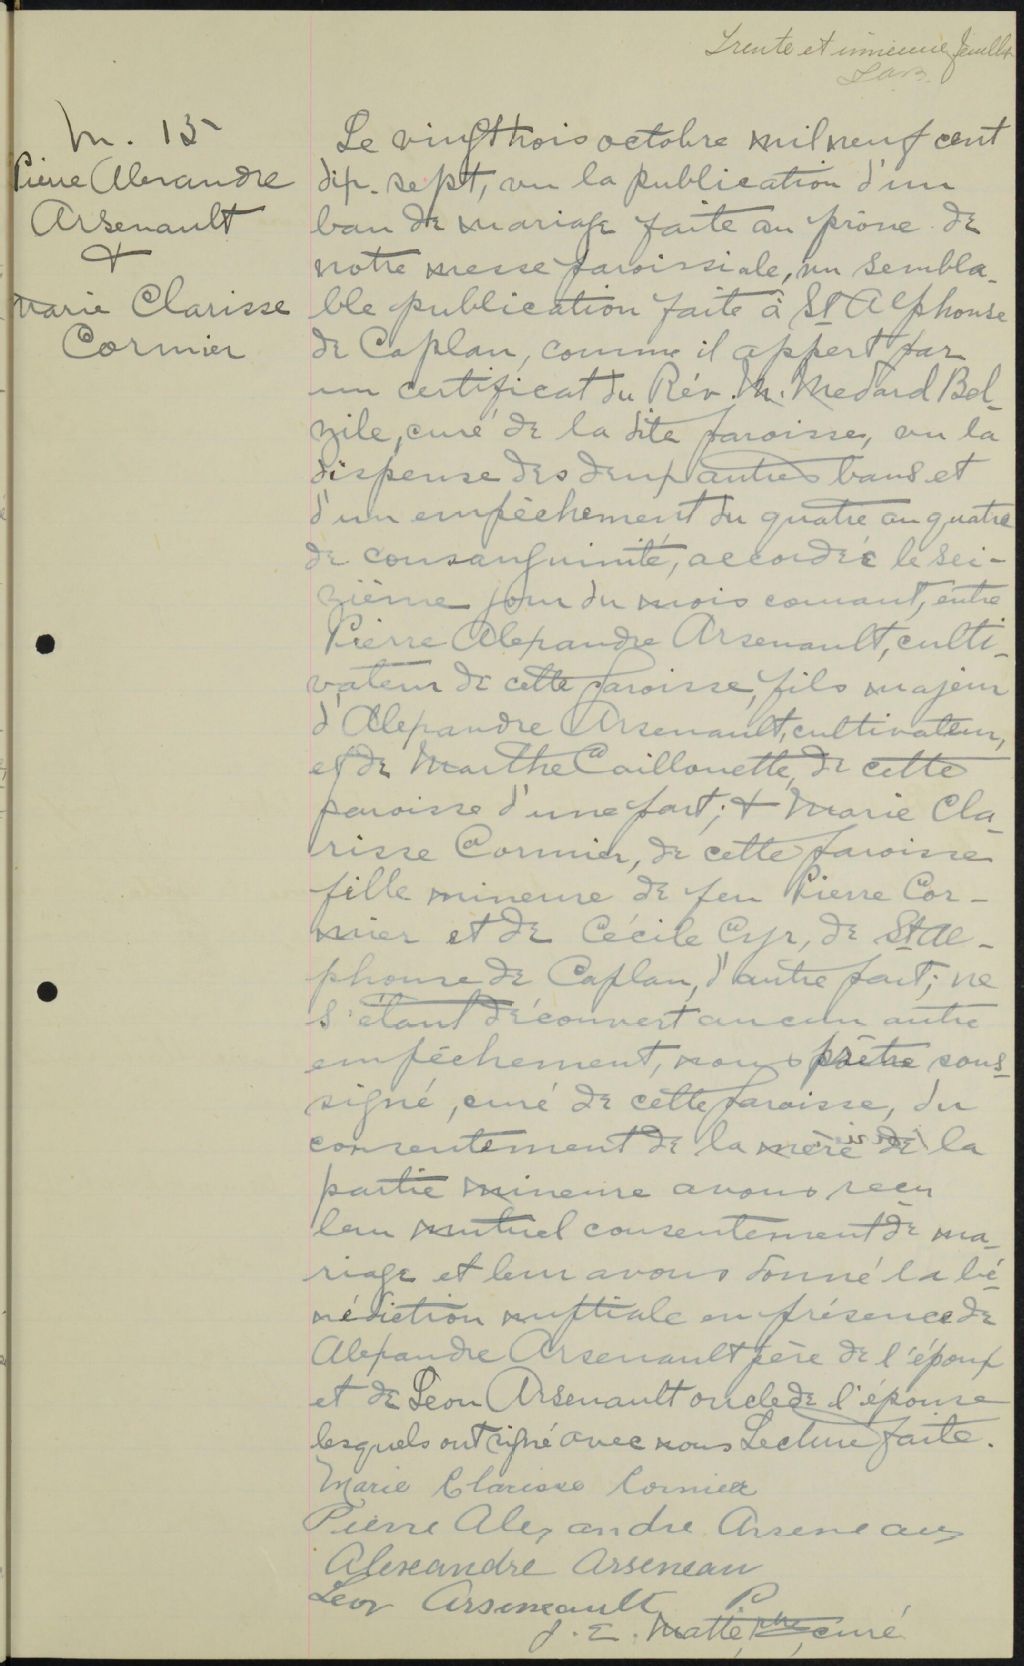 Trente et unieme feuillet
M. 15
Pierre Alexandre
Arsenault
&
Marie Clarisse
Cormier
Le vingt trois octobre mil neuf cent
dix-sept, vu la publication d'un
ban de mariage faite au prône de
notre messe paroissiale, vu sembla-
ble publication faite à St Alphonse
de Caplan, comme il appert par
un certificat du Rév. M. Médard Bel-
zile, curé de la dite paroisse, vu la
dispense des deux autres bans et
d'un empêchement du quatre au quatre
de consanguinité, accordée le sei-
zième jour du mois courant, entre
Pierre Alexandre Arsenault, culti-
vateur de cette paroisse, fils majeur
d'Alexandre Arsenault, cultivateur,
et de Marthe Caillouette, de cette
paroisse d'une part; & Marie Cla-
risse Cormier, de cette paroisse
fille mineure de feu Pierre Cor-
mier et de Cécile Cyr, de St Al-
phonse de Caplan, d'autre part; ne
s'étant découvert aucun autre
empêchement, nous prêtre sous-
signé, curé de cette paroisse, du
consentement de la mère de la
partie mineure avons reçu
leur mutuel consentement de ma-
riage et leur avons donné la bé-
nédiction nuptiale en présence de
Alexandre Arsenault père de l'époux
et de Léon Arsenault oncle de l'épouse
lesquels ont signé avec nous Lecture faite.
Marie Clarisse Cormier
Pierre Alexandre Arseneau
Alexandre Arseneau
Léon Arseneault
J. E. Matte, Ptre, curé